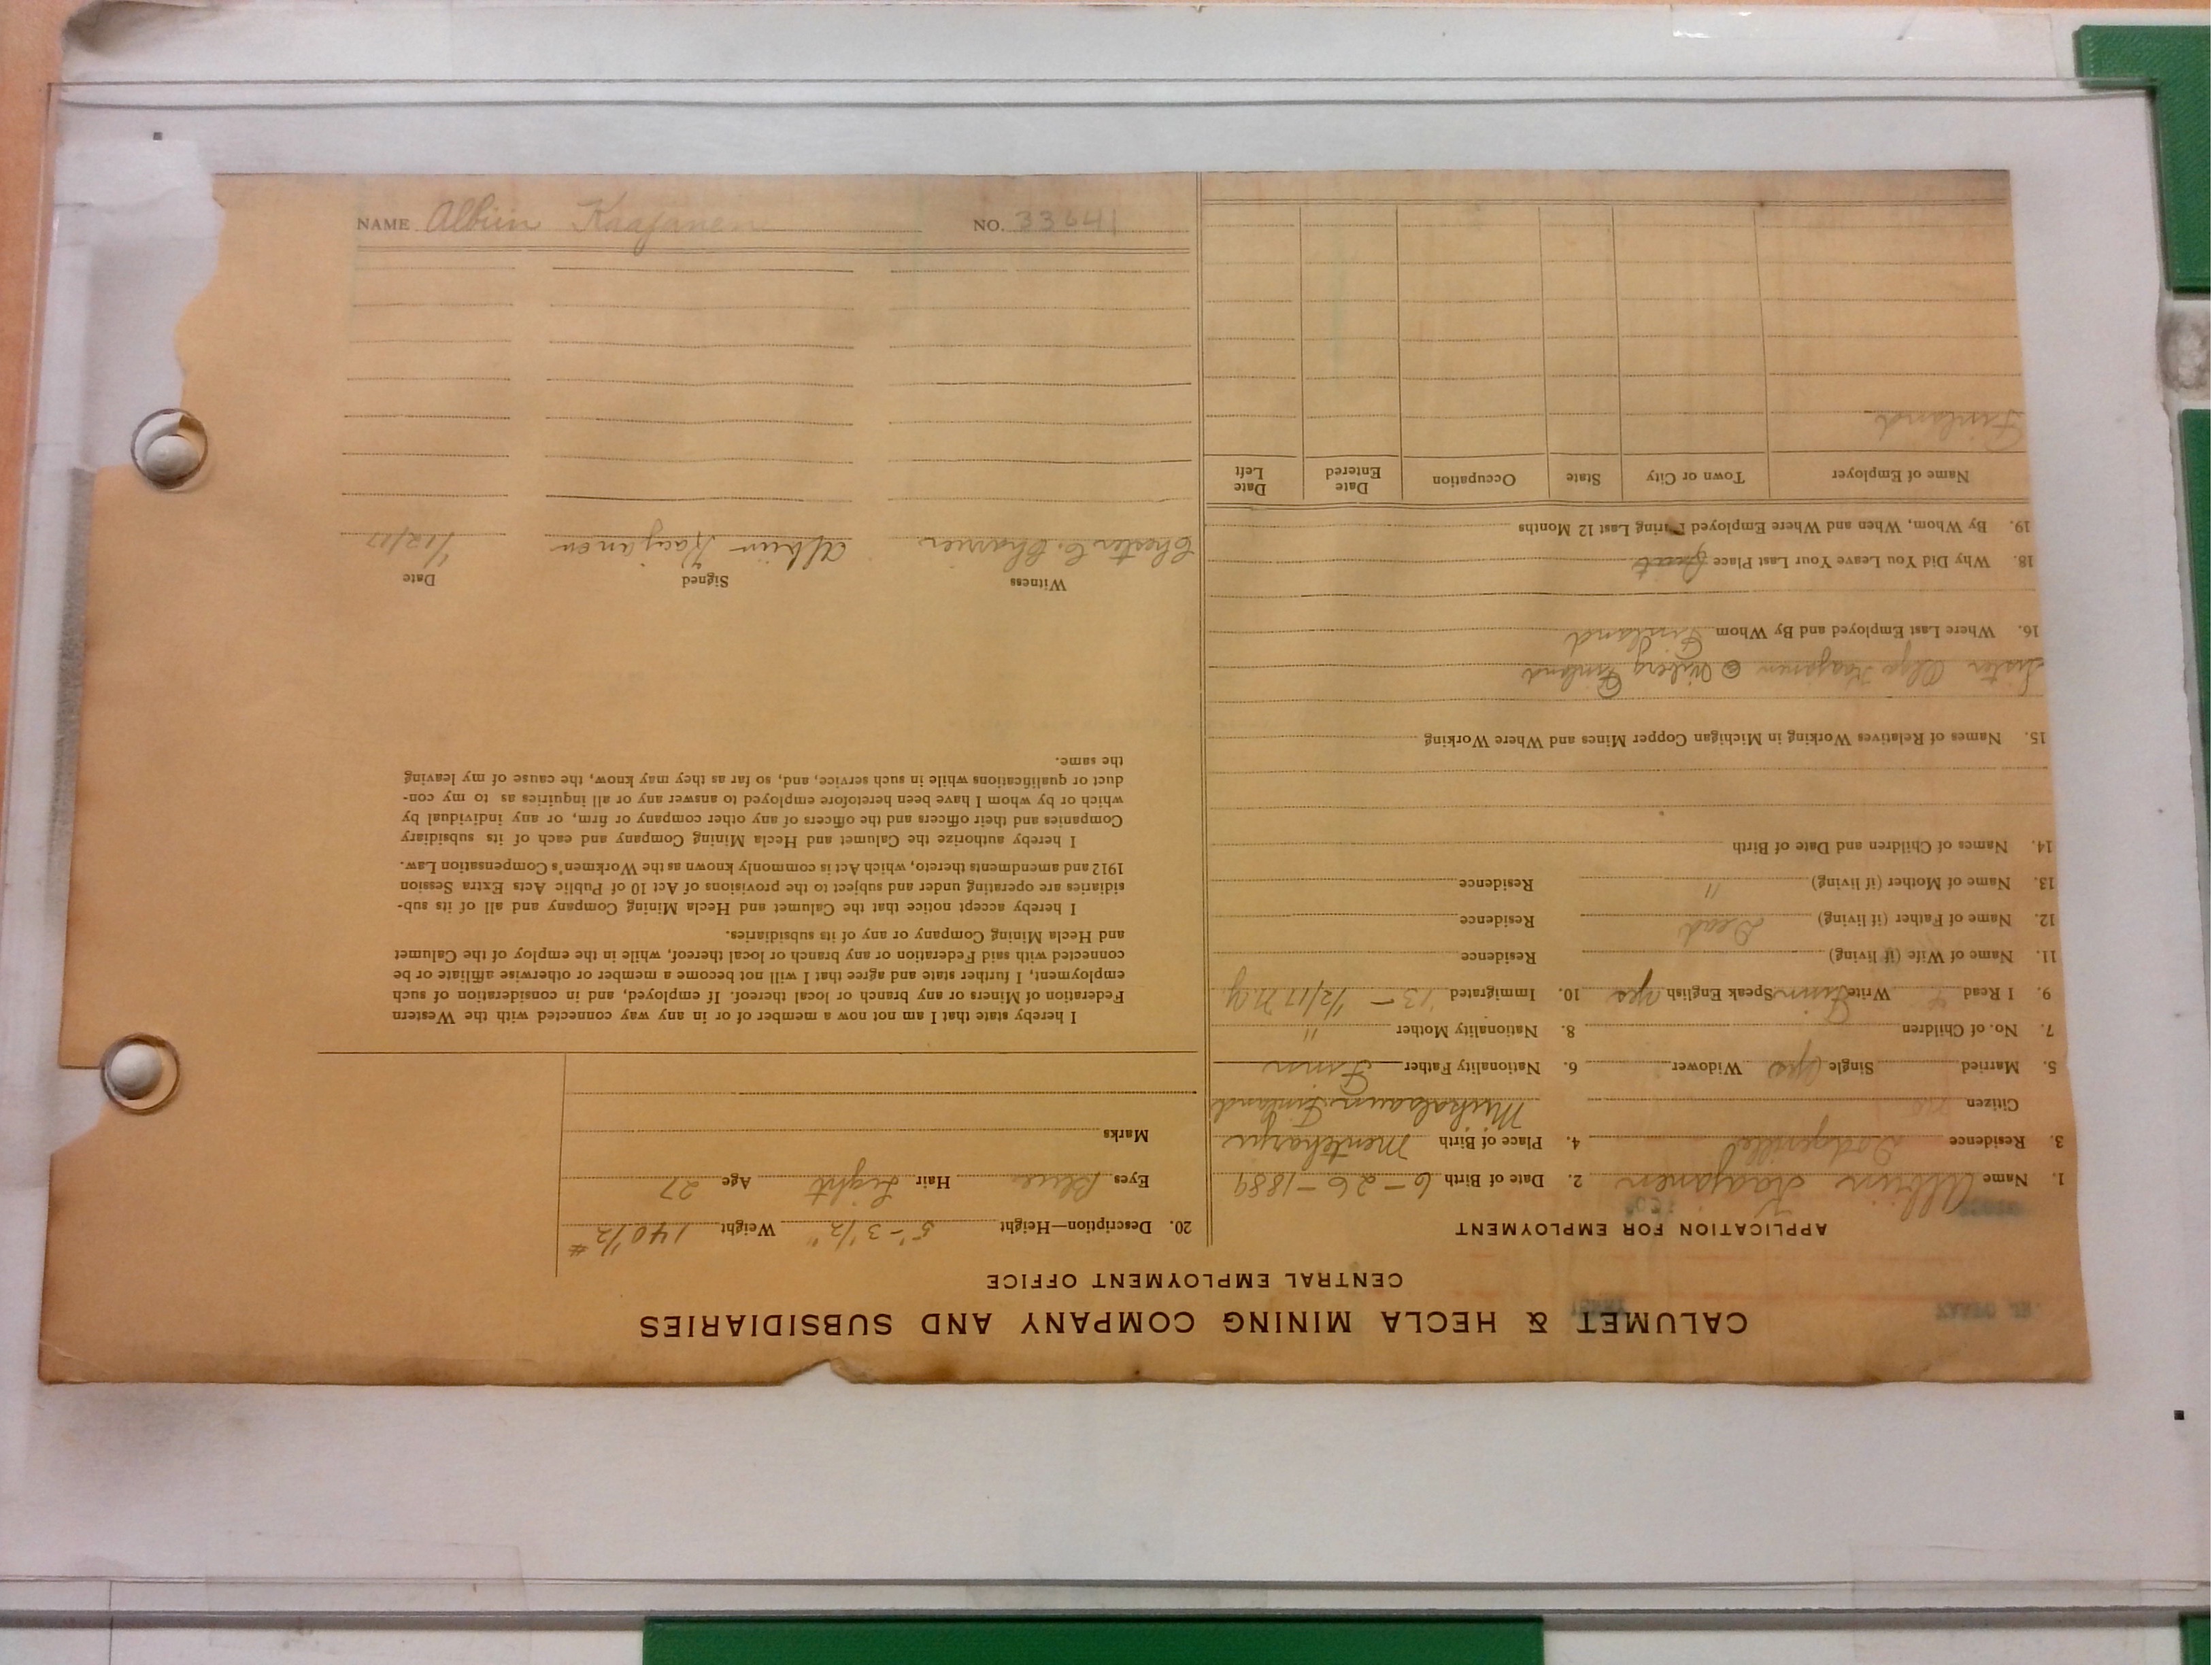 CALUMET & HECLA MINING COMPANY AND SUBSIDIARIES
CENTRAL EMPLOYMENT OFFICE
APPLICATION FOR EMPLOYMENT
1. Name Albiin Kaajanen 2. Date of Birth 6-26-1889
3. Residence Dodgeville 4. Place of Birth
Citizen no Finland
5. Married Single yes Widower 6. Nationality Father Finn
7. No. of Children 8. Nationality Mother "
9. I Read Write Finn Speak English yes 10. Immigrated '13- 1/2/17 N.Y
11. Name of Wife (if living) Residence
12. Name of Father (if living) Dead Residence
13. Name of Mother (if living) " Residence
14. Names of Children and Date of Birth
15. Names of Relatives Working in Michigan Copper Mines and Where Working
Sister Olga Kaajanen Finland
16. Where Last Employed and By Whom Finland
18. Why Did You Leave Your Last Place Quit
19. By Whom, When and Where Employed During Last 12 Months
Name of Employer Town or City State Occupation Date Entered Date Left
Finland
20. Description—Height 5'-3 1/2" Weight 140 1/2 #
Eyes Blue Hair Light Age 27
Marks
I hereby state that I am not now a member of or in any way connected with the Western
Federation of Miners or any branch or local thereof. If employed, and in consideration of such
employment, I further state and agree that I will not become a member or otherwise affiliate or be
connected with said Federation or any branch or local thereof, while in the employ of the Calumet
and Hecla Mining Company or any of its subsidiaries.
I hereby accept notice that the Calumet and Hecla Mining Company and all of its sub-
sidiaries are operating under and subject to the provisions of Act 10 of Public Acts Extra Session
1912 and amendments thereto, which Act is commonly known as the Workmen's Compensation Law.
I hereby authorize the Calumet and Hecla Mining Company and each of its subsidiary
Companies and their officers and the officers of any other company or firm, or any individual by
which or by whom I have been heretofore employed to answer any or all inquiries as to my con-
duct or qualifications while in such service, and, so far as they may know, the cause of my leaving
the same.
Witness Signed Date
Chester C. Albiin Kaajanen 1/12/17
NAME Albiin Kaajanen NO. 33641